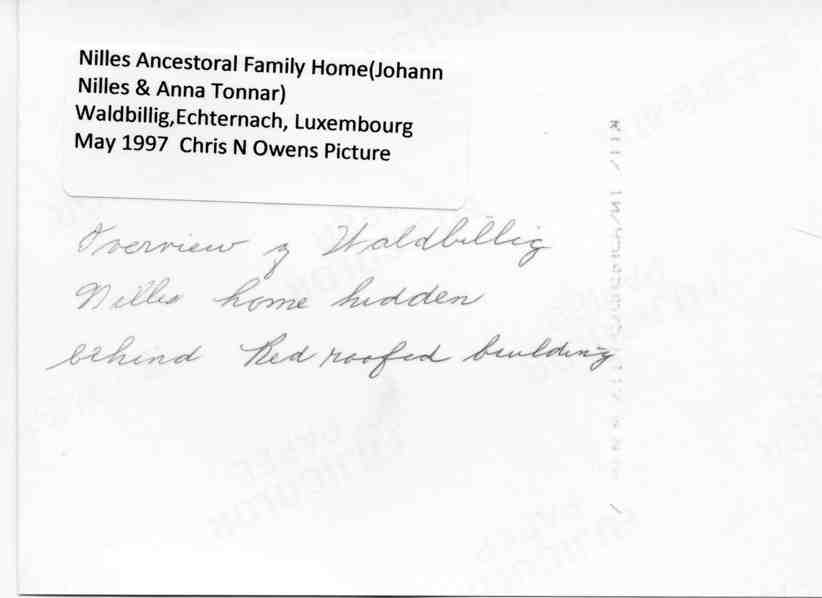 Nilles Ancestoral Family Home(Johann
Nilles & Anna Tonnar)
Waldbillig,Echternach, Luxembourg
May 1997  Chris N Owens Picture
Overview of Waldbillig
Nilles home hidden
behind Red roofed building